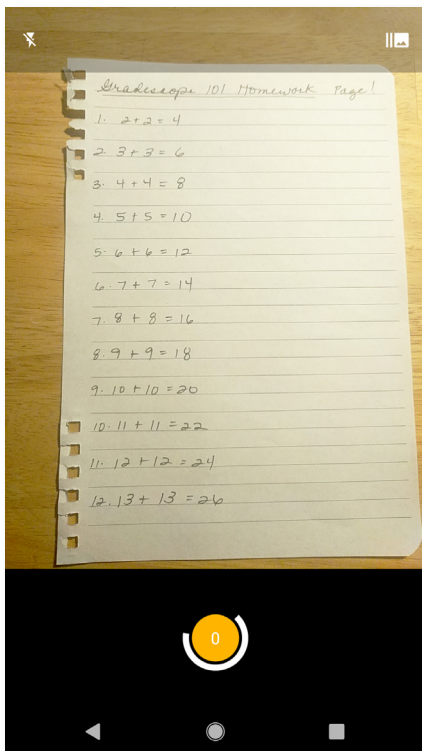 Gradescope 101 Homework Page!
1. 2+2=4
2. 3+3=6
3. 4+4=8
4. 5+5=10
5. 6+6=12
6. 7+7=14
7. 8+8=16
8. 9+9=18
9. 10+10=20
10. 11+11=22
11. 12+12=24
12. 13+13=26
0